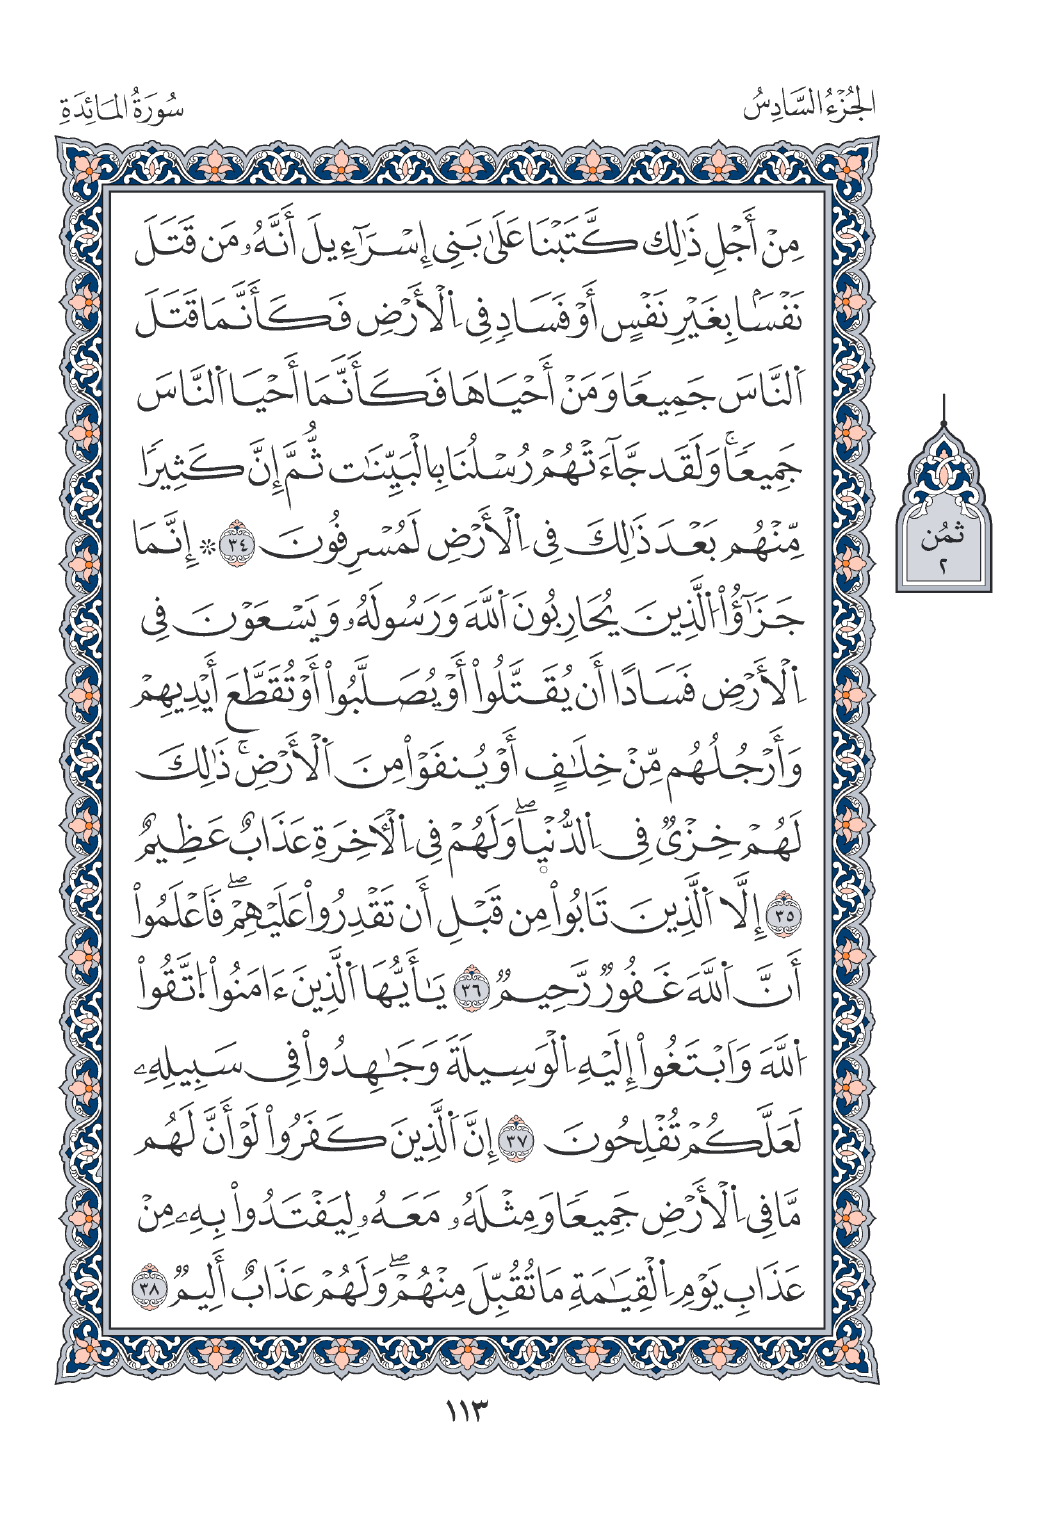 الجُزْءُ السَّادِسُ
سُورَةُ المَائِدَةِ
مِنْ أَجْلِ ذَٰلِكَ كَتَبْنَا عَلَىٰ بَنِي إِسْرَٰٓءِيلَ أَنَّهُۥ مَن قَتَلَ
نَفْسَۢا بِغَيْرِ نَفْسٍ أَوْ فَسَادٖ فِي اِ۬لْأَرْضِ فَكَأَنَّمَا قَتَلَ
اَ۬لنَّاسَ جَمِيعٗا وَمَنْ أَحْيَاهَا فَكَأَنَّمَا أَحْيَا اَ۬لنَّاسَ
جَمِيعٗاۚ وَلَقَد جَّآءَتْهُمْ رُسْلُنَا بِالْبَيِّنَٰت ثُّمَّ إِنَّ كَثِيرٗا
مِّنْهُم بَعْدَ ذَٰلِكَ فِي اِ۬لْأَرْضِ لَمُسْرِفُونَ ٣٤ ۞ إِنَّمَا
جَزَٰٓؤُاْ اُ۬لَّذِينَ يُحَارِبُونَ اَ۬للَّهَ وَرَسُولَهُۥ وَيَسْعَوْنَ فِي
اِ۬لْأَرْضِ فَسَادًا أَن يُقَتَّلُواْ أَوْ يُصَلَّبُواْ أَوْ تُقَطَّعَ أَيْدِيهِمْ
وَأَرْجُلُهُم مِّنْ خِلَٰفٍ أَوْ يُنفَوْاْ مِنَ اَ۬لْأَرْضِۚ ذَٰلِكَ
لَهُمْ خِزْيٞ فِي اِ۬لدُّنْي۪اۖ وَلَهُمْ فِي اِ۬لْأٓخِرَةِ عَذَابٌ عَظِيمٌ
٣٥ إِلَّا اَ۬لَّذِينَ تَابُواْ مِن قَبْلِ أَن تَقْدِرُواْ عَلَيْهِمْۖ فَاعْلَمُواْ
أَنَّ اَ۬للَّهَ غَفُورٞ رَّحِيمٞ ٣٦ يَٰأَيُّهَا اَ۬لَّذِينَ ءَامَنُواْ اُ۪تَّقُواْ
اُ۬للَّهَ وَابْتَغُواْ إِلَيْهِ اِ۬لْوَسِيلَةَ وَجَٰهِدُواْ فِي سَبِيلِهِۦ
لَعَلَّكُمْ تُفْلِحُونَ ٣٧ إِنَّ اَ۬لَّذِينَ كَفَرُواْ لَوْ أَنَّ لَهُم
مَّا فِي اِ۬لْأَرْضِ جَمِيعٗا وَمِثْلَهُۥ مَعَهُۥ لِيَفْتَدُواْ بِهِۦ مِنْ
عَذَابِ يَوْمِ اِ۬لْقِيَٰمَةِ مَا تُقُبِّلَ مِنْهُمْۖ وَلَهُمْ عَذَابٌ أَلِيمٞ ٣٨
ثمُن
٢
١١٣